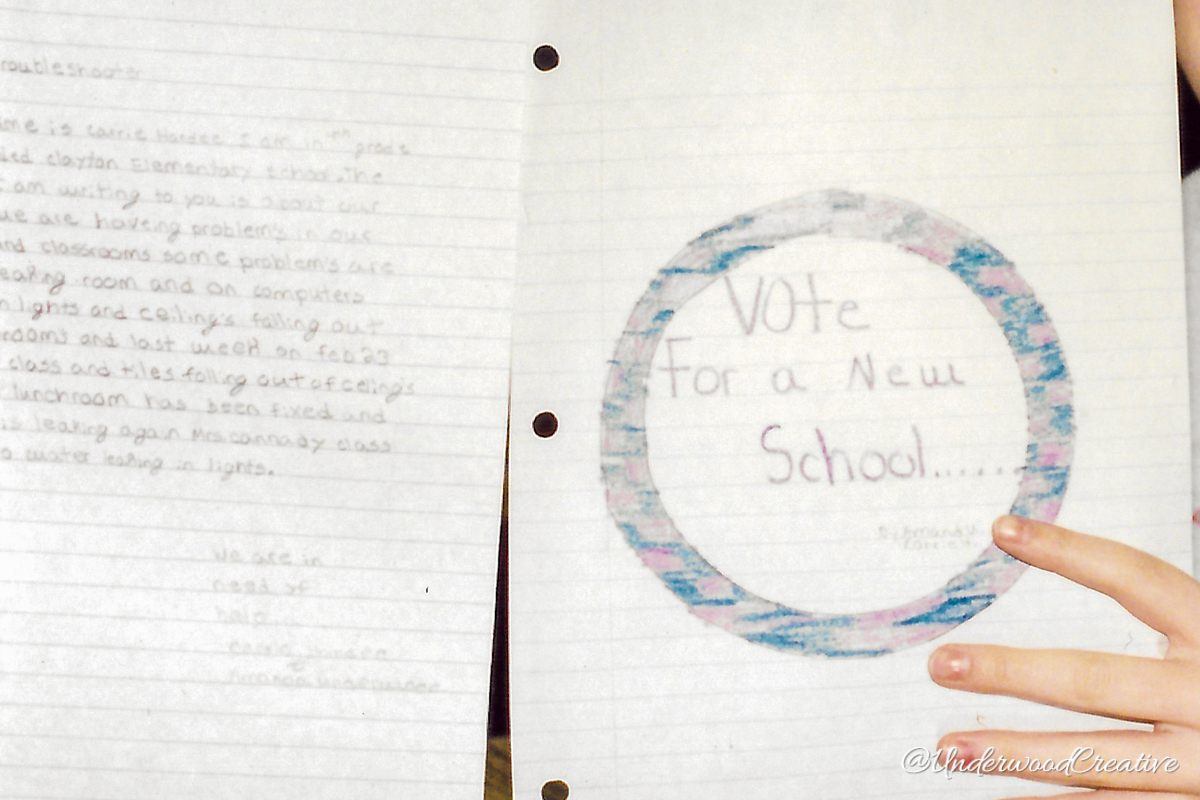 roubleshooter
ame is Carrie Hardee I am in grade
led clayton Elementary school. The
I am writing to you is about our
we are haveing problem's in our
and classrooms some problem's are
eaking room and on computers
n lights and ceiling's falling out
rooms and last week on feb 23
class and tiles falling out of celing's
lunchroom has been fixed and
is leaking again Mrs. cannady class
o water leaking in lights.
We are in
need of
help
Amanda Underwood
VOte
For a New
School......
By: Amanda
Carrie
@UnderwoodCreative